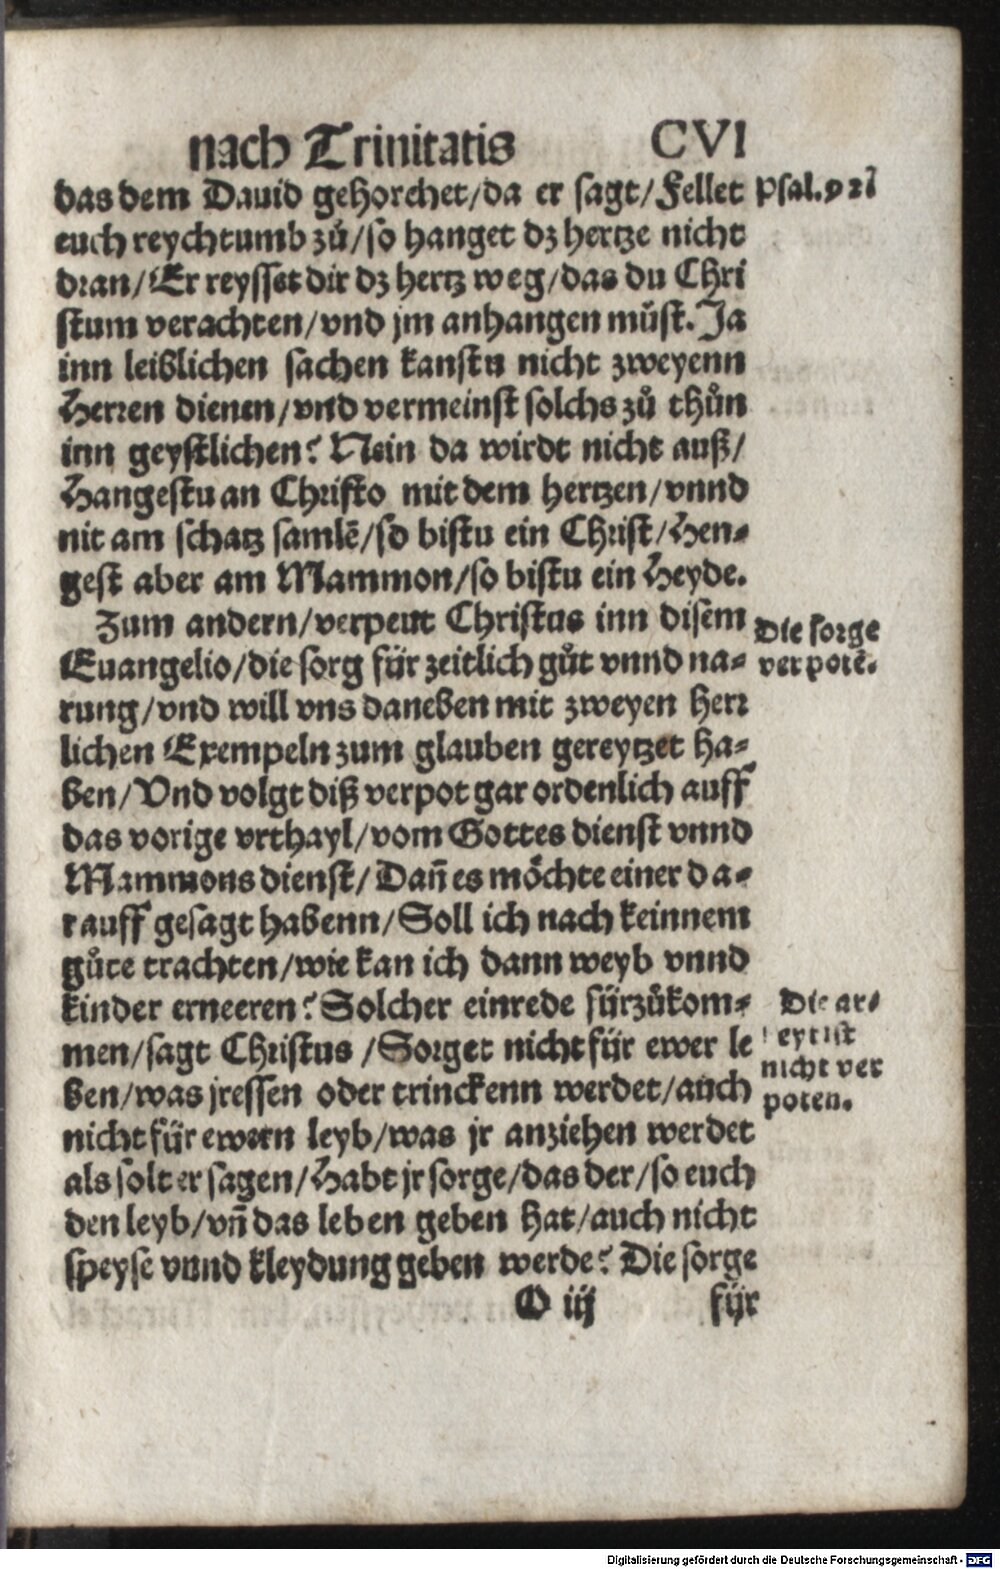 nach Trinitatis CVI
das dem Dauid gehorchet/da er sagt/Fellet
euch reychtumb zů/so hanget dz hertze nicht
dran/Er reysset dir dz hertz weg/das du Chri
stum verachten/vnd jm anhangen můst. Ja
inn leiblichen sachen kanstu nicht zweyenn
Herren dienen/vnd vermeinst solchs zů thůn
inn geystlichen? Nein da wirdt nicht auß/
Hangestu an Christo mit dem hertzen/vnnd
nit am schatz samlē/so bistu ein Christ/Hen-
gest aber am Mammon/so bistu ein Heyde.
Zum andern/verpeut Christus inn disem
Euangelio/die sorg für zeitlich gůt vnnd na-
rung/vnd will vns daneben mit zweyen herr
lichen Exempeln zum glauben gereytzet ha-
ben/Vnd volgt diß verpot gar ordenlich auff
das vorige vrthayl/vom Gottes dienst vnnd
Mammons dienst/Dañ es möchte einer da-
rauff gesagt habenn/Soll ich nach keinnem
gůte trachten/wie kan ich dann weyb vnnd
kinder erneeren? Solcher einrede fürzůkom-
men/sagt Christus/Sorget nicht für ewer le
ben/was jr essen oder trinckenn werdet/auch
nicht für ewern leyb/was jr anziehen werdet
als solt er sagen/Habt jr sorge/das der/so euch
den leyb/vñ das leben geben hat/auch nicht
speyse vnnd kleydung geben werde? Die sorge
O iij für
Psal.
Die sorge
verpotē.
Die ar-
eyt ist
nicht ver
poten.
Digitalisierung gefördert durch die Deutsche Forschungsgemeinschaft - DFG